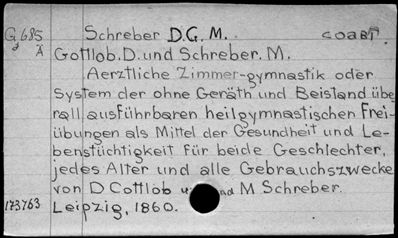 G 685 Schreber D.G. M. COART.
A Gottlob. D. und Schreber. M.
Aerztliche Zimmer-gymnastik oder
System der ohne Geräth und Beistand übe-
rall ausführbaren heilgymnastischen Frei-
übungen als Mittel der Gesundheit und Le-
benstüchtigkeit für beide Geschlechter,
jedes Alter und alle Gebrauchszwecke
von D Gottlob und M Schreber.
173763 Leipzig, 1860.